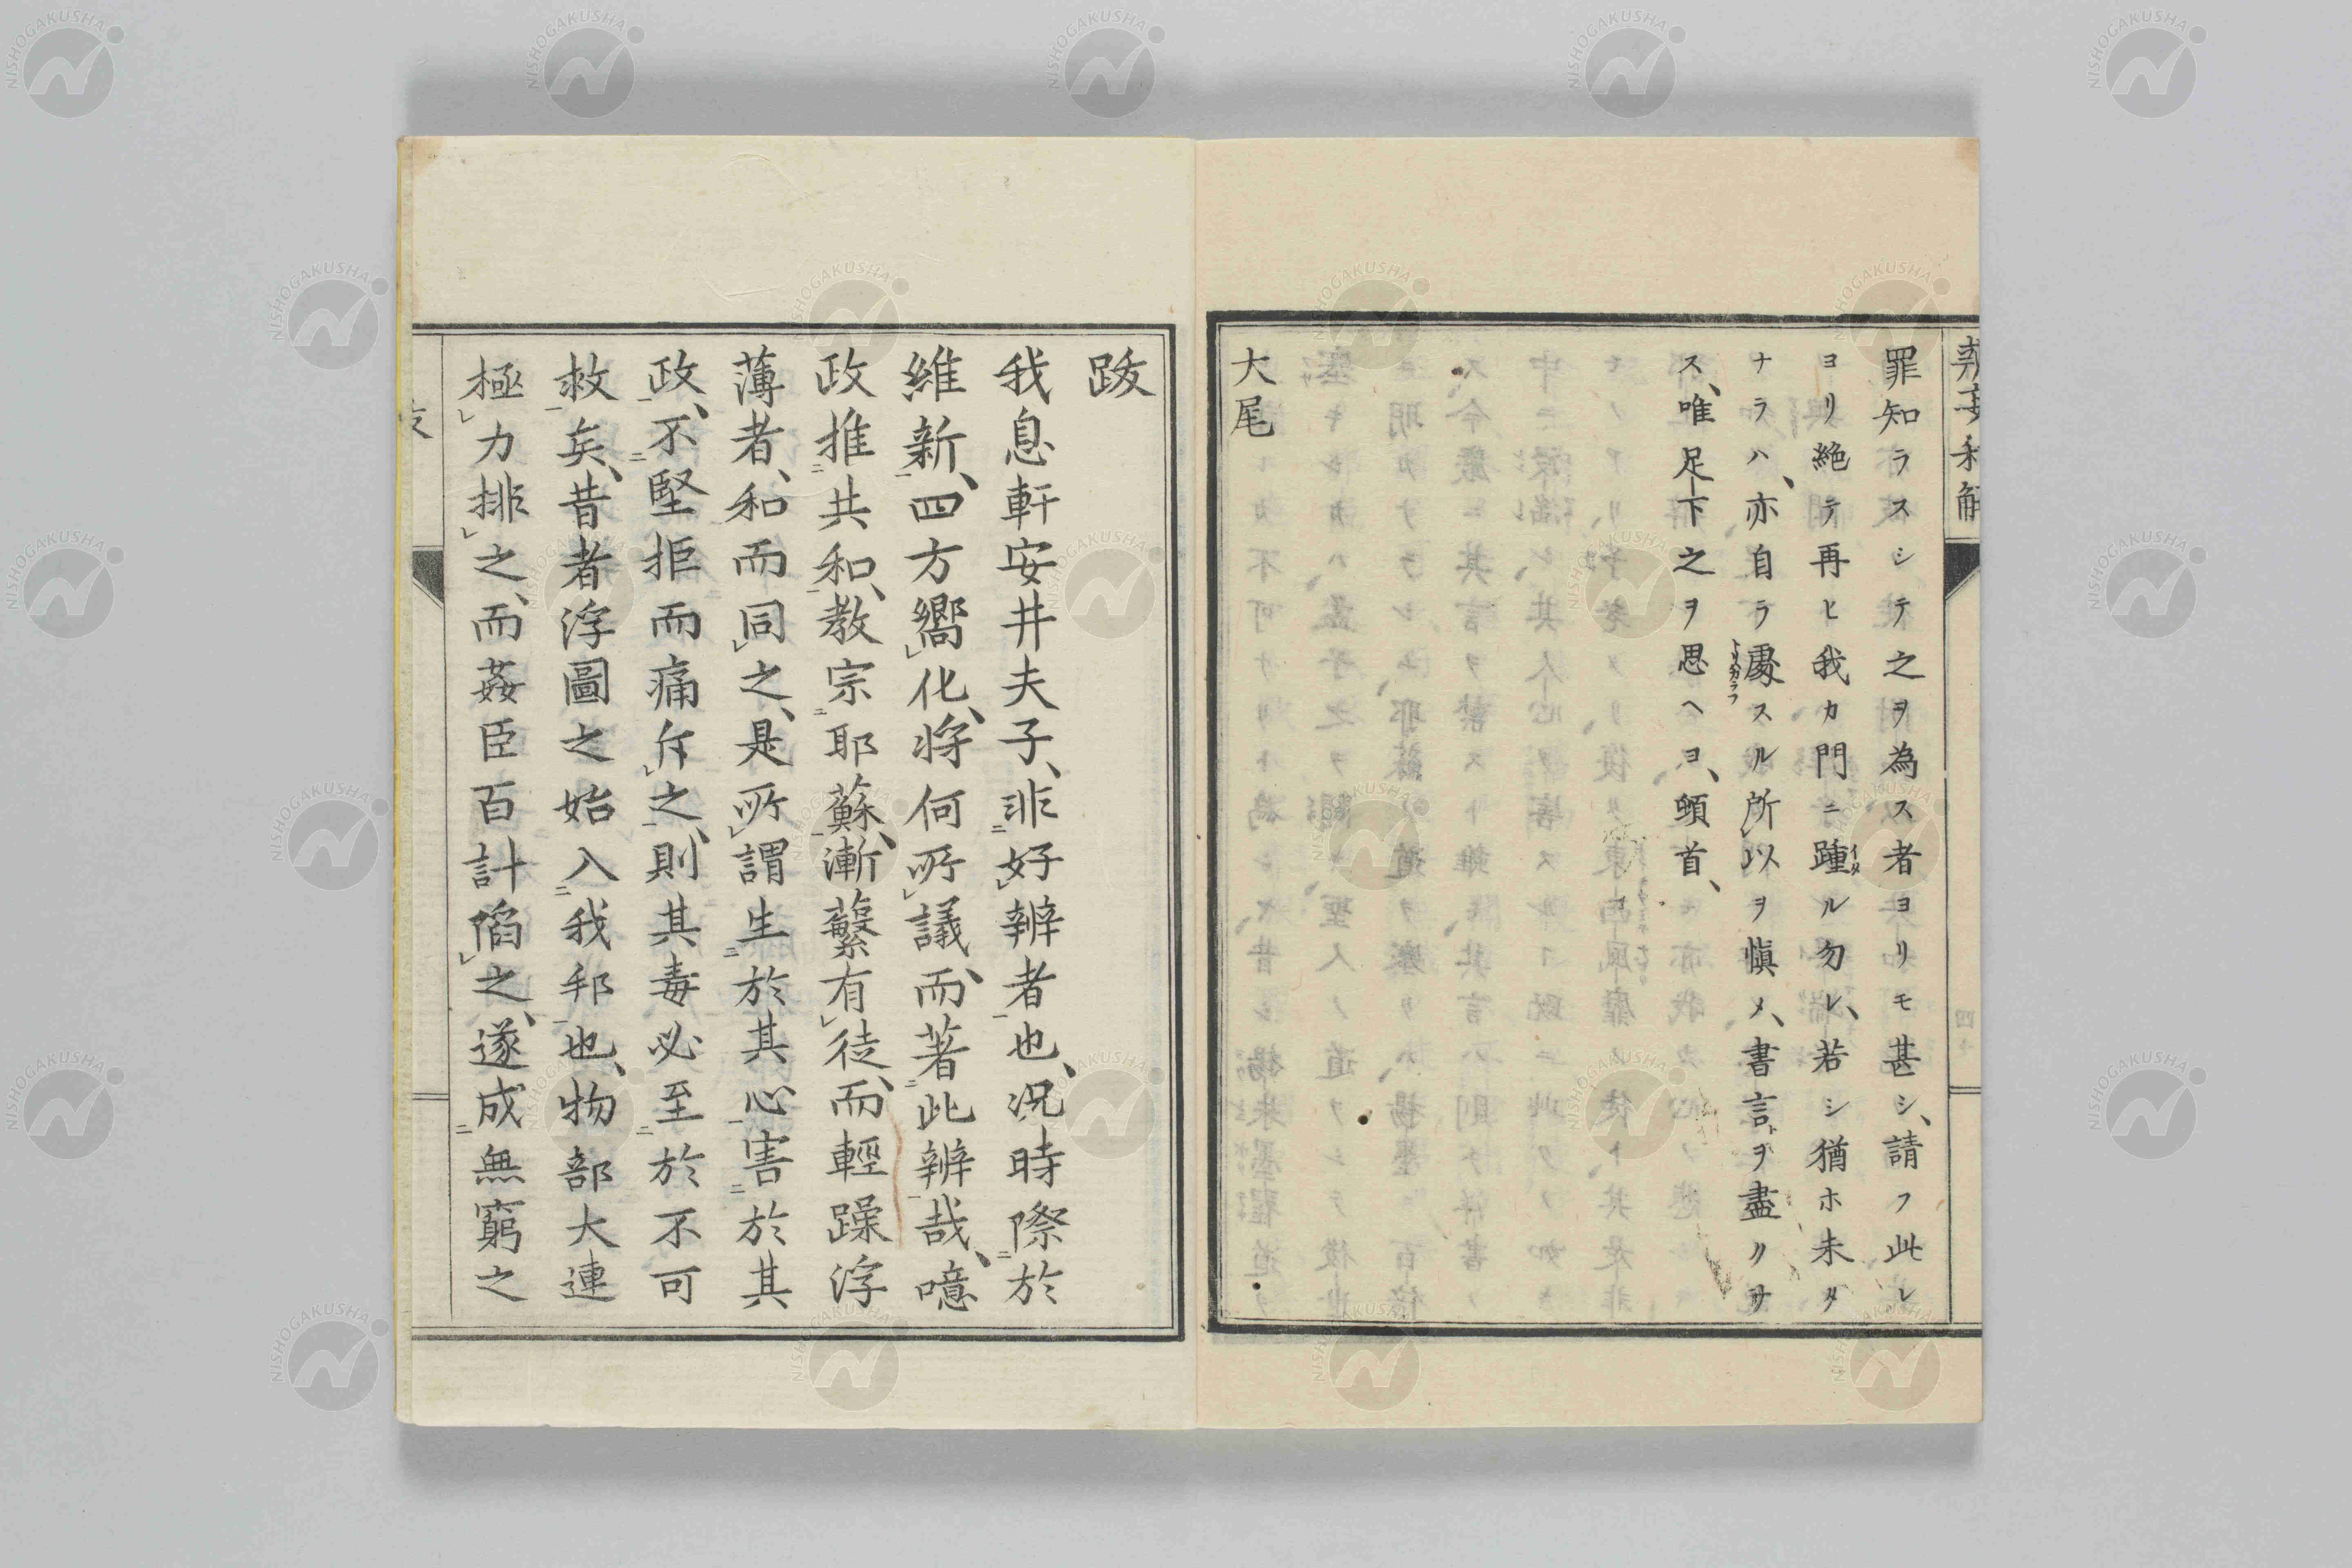 罪知ラスシテ之ヲ為ス者ヨリモ甚シ、請フ此レ
ヨリ絶テ再ヒ我カ門ニ踵ル勿レ、若シ猶ホ未タ
ナラハ、亦自ラ處スル所以ヲ愼メ、書言ヲ盡クサ
ス、唯足下之ヲ思ヘヨ、頓首、
大尾
跋
我息軒安井夫子、非好辨者也、況時際於
維新、四方嚮化、将何所議、而著此辨哉、噫
政推共和、教宗耶蘇、漸蘩有徒、而輕躁浮
薄者、和而同之、是所謂生於其心害於其
政、不堅拒而痛斥之、則其毒必至於不可
救矣、昔者浮圖之始入我邦也、物部大連
極力排之、而姦臣百計陷之、遂成無窮之
NISHOGAKUSHA